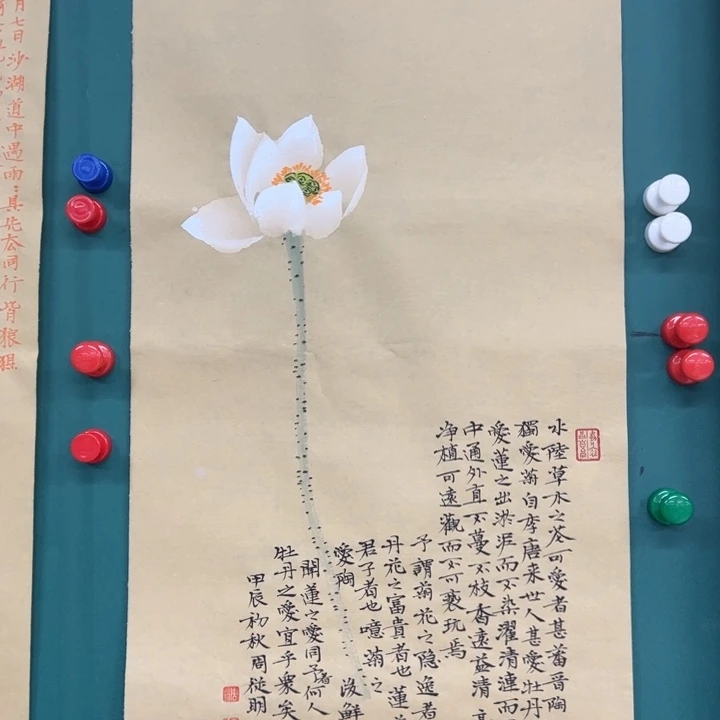 水陸草木之花可愛者甚蕃晋陶
獨愛菊自李唐来世人甚愛牡丹
愛蓮之出淤泥而不染濯清漣而
中通外直不蔓不枝香遠益清
净植可遠觀而不可褻玩焉
予謂菊花之隐逸者
丹花之富貴者也蓮
君子者也噫菊之
愛陶後鮮
聞蓮之愛同予者何人
牡丹之愛宜乎衆矣
甲辰初秋周從明
月七日沙湖道中遇雨〻具先去同行皆狼狽